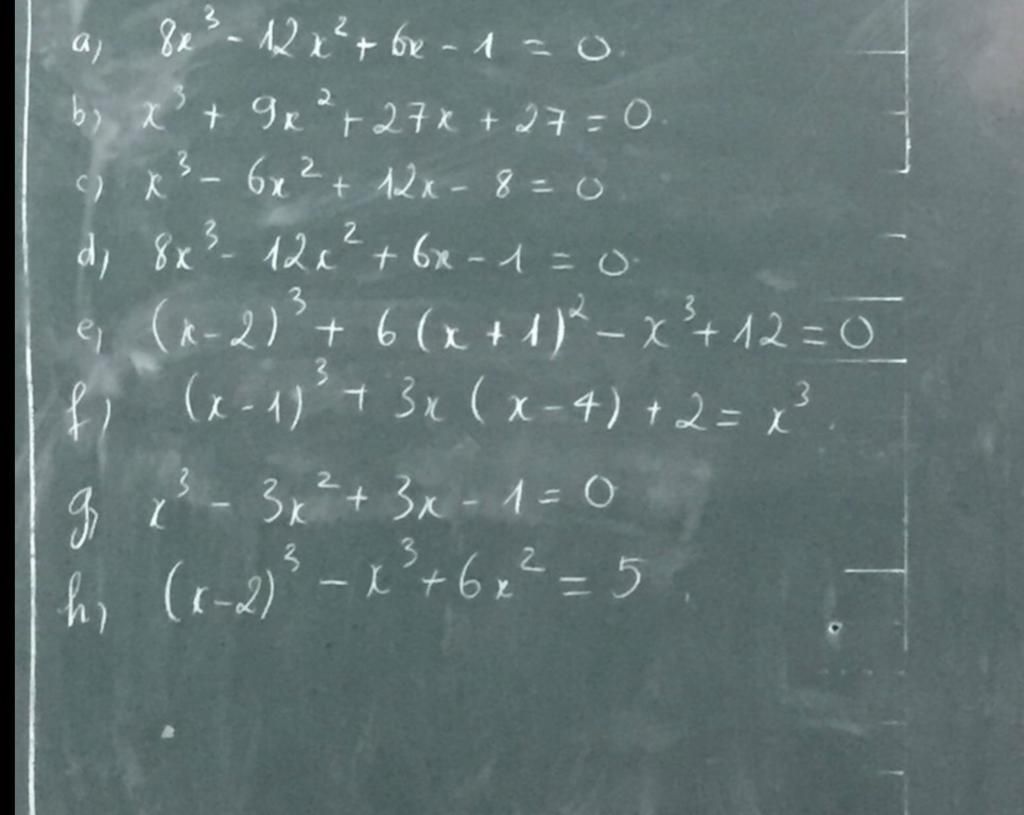 a, 8x³ - 12x² + 6x - 1 = 0.
b) x³ + 9x² + 27x + 27 = 0.
c) x³ - 6x² + 12x - 8 = 0
d, 8x³ - 12x² + 6x - 1 = 0.
e, (x-2)³ + 6(x+1)² - x³ + 12 = 0
f) (x-1)³ + 3x(x-4) + 2 = x³.
g, x³ - 3x² + 3x - 1 = 0
h, (x-2)³ - x³ + 6x² = 5.